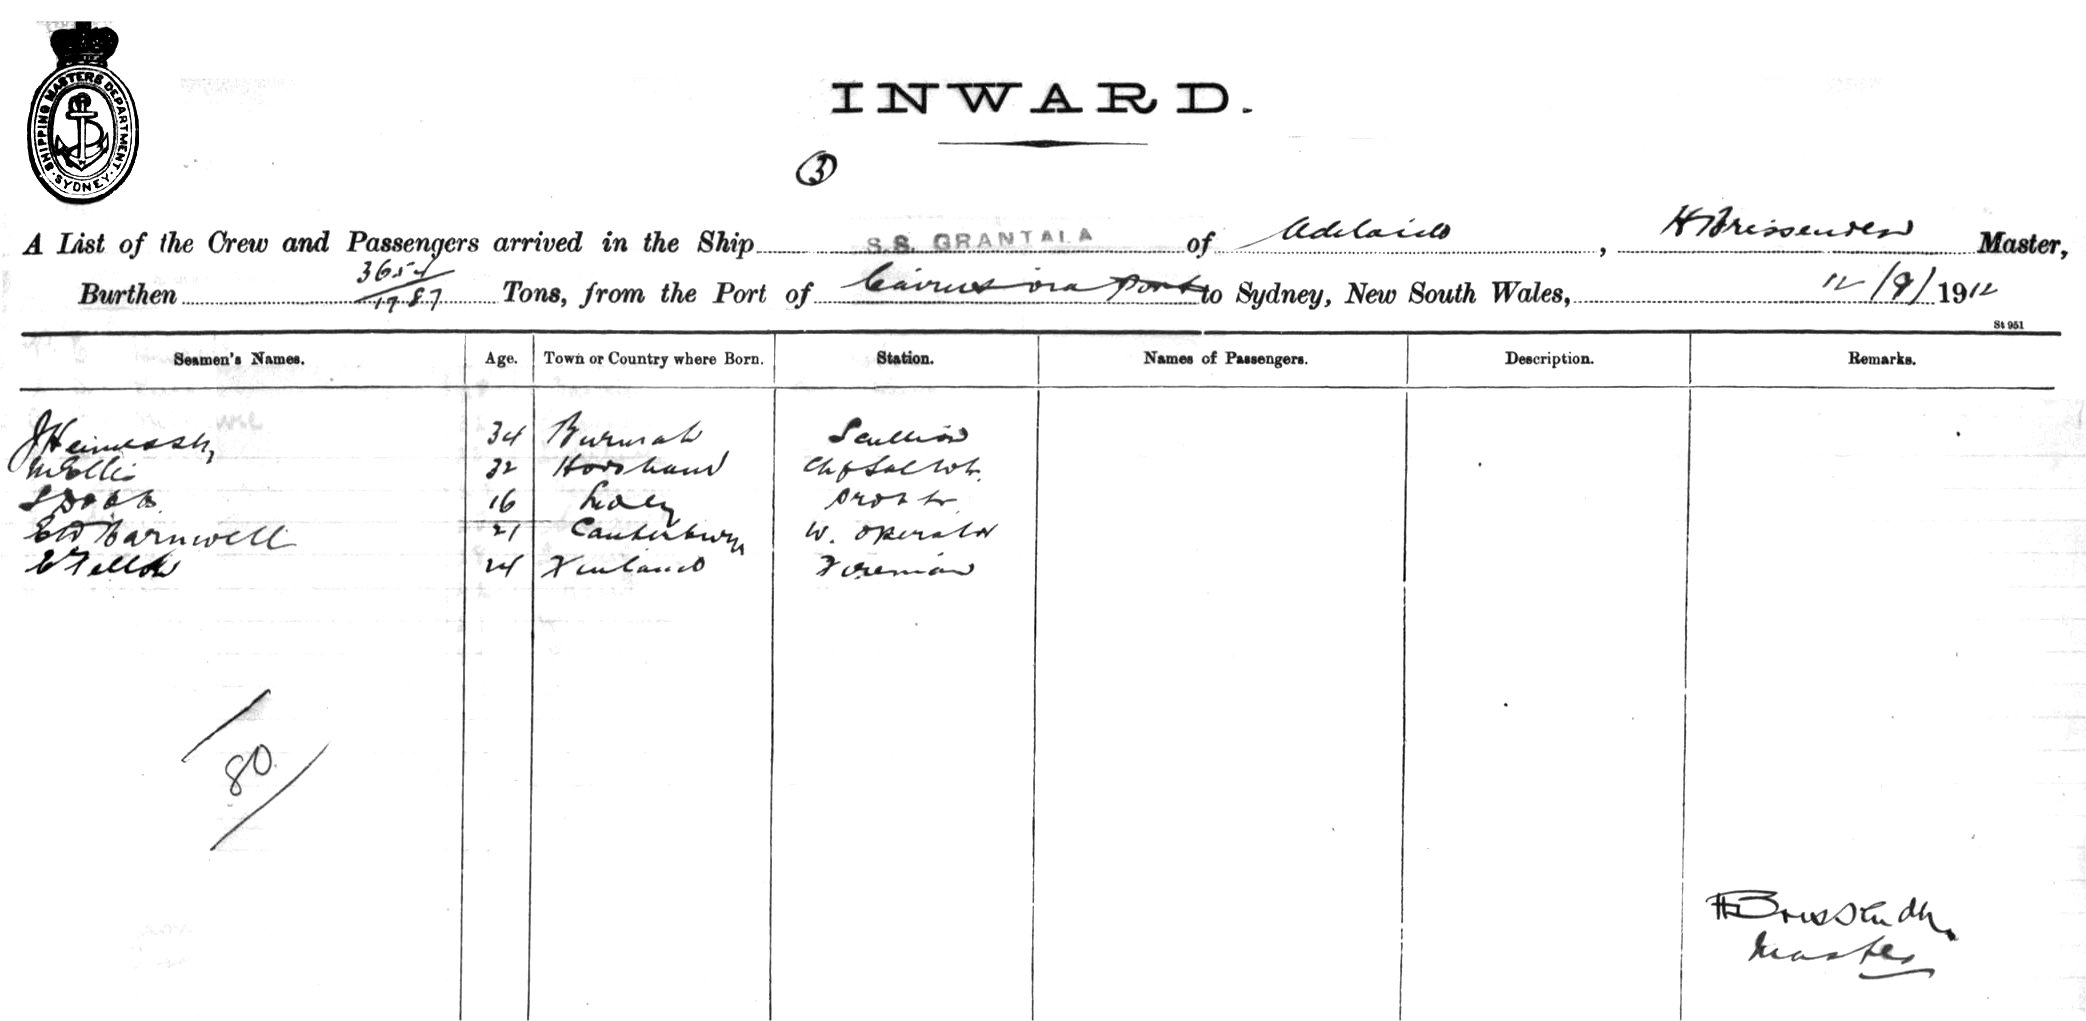 SHIPPING MASTERS DEPARTMENT. SYDNEY.
INWARD.
3
A List of the Crew and Passengers arrived in the Ship S.S. GRANTALA of Adelaide, H Brissenden Master,
Burthen 3654/1787 Tons, from the Port of Cairns via Ports to Sydney, New South Wales, 12/9/1912
St 951
Seamen's Names. Age. Town or Country where Born. Station. Names of Passengers. Description. Remarks.
J Hennessy 34 Burmah Scullion
M Ellis 32 Horsham
16
E W Barnwell 21 Canterbury W. operator
24 Finland Fireman
80
H Brissenden
Master